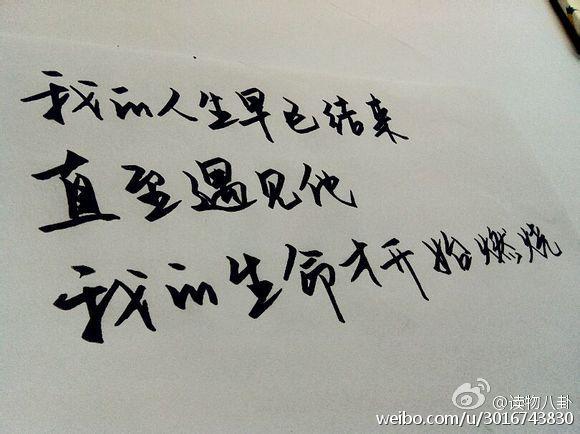 我的人生早已结束
直至遇见他
我的生命才开始燃烧
@读物八卦
weibo.com/u/3016743830